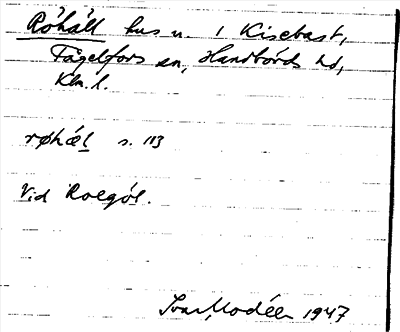 Röhäll hus u. / Kisebast,
Fågelfors sn, Handbörds hd,
Klm. l.
røhæl s. 113
Vid Roegöl.
Ivar Modéer 1947